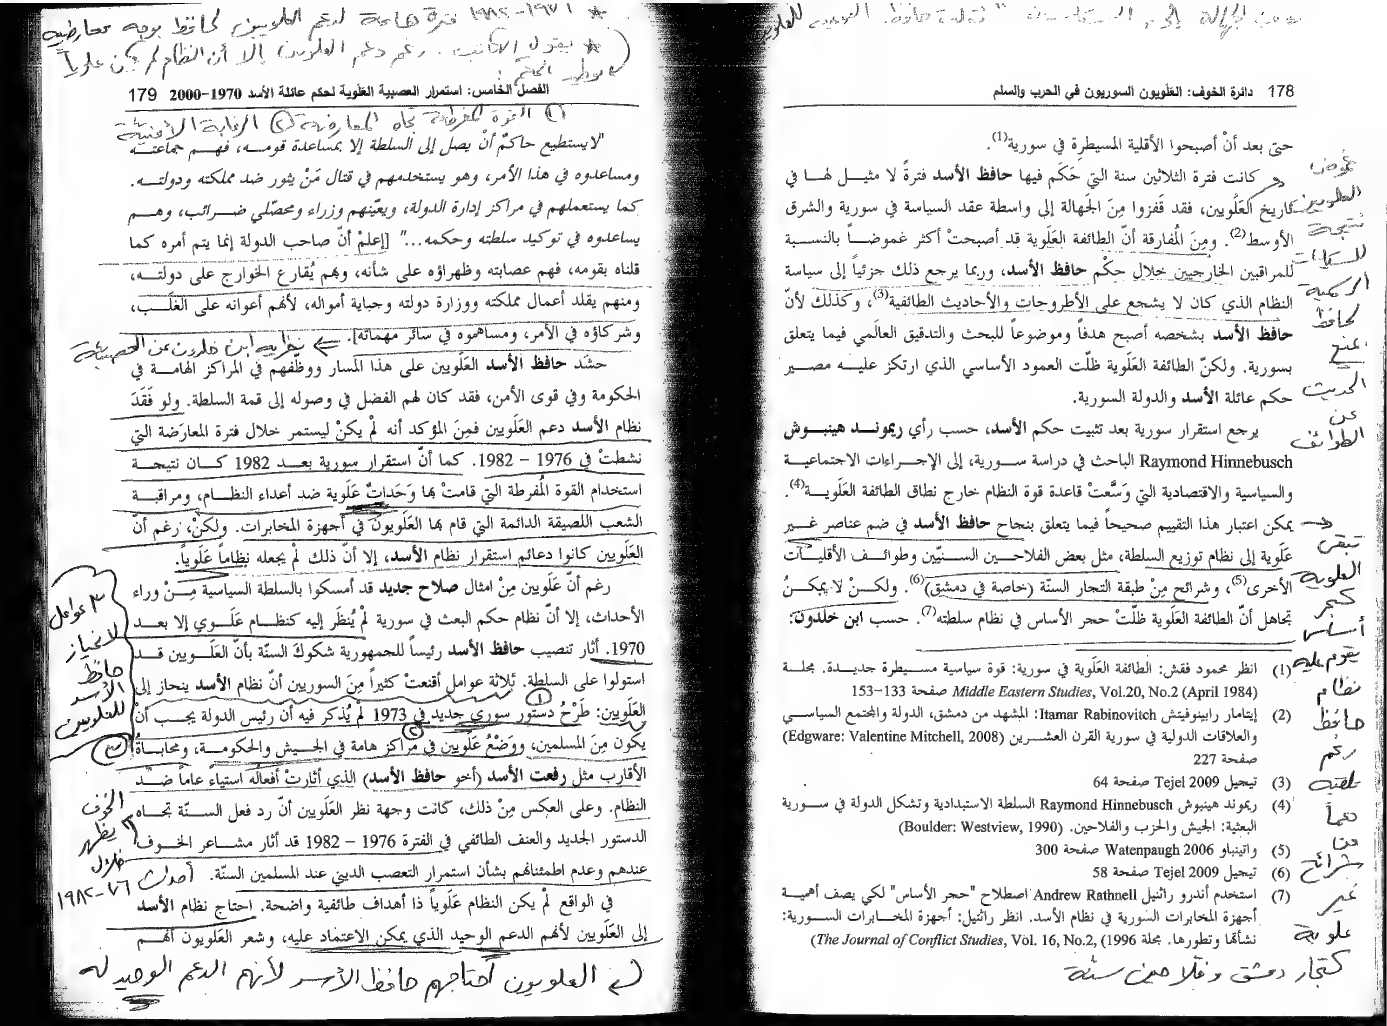 من الجهالة إلى
178 دائرة الخوف: العلويون السوريون في الحرب والسلم
حتى بعد أنْ أصبحوا الأقلية المسيطرة في سورية(1).
كانت فترة الثلاثين سنة التي حَكَم فيها حافظ الأسد فترةً لا مثيل لها في
تاريخ العَلَويين، فقد قفزوا مِنَ الجهالة إلى واسطة عقد السياسة في سورية والشرق
الأوسط(2). ومِنَ المُفارقة أنّ الطائفة العَلَوية قد أصبحتْ أكثر غموضاً بالنسبة
للمراقبين الخارجيين خلال حكْم حافظ الأسد، وربما يرجع ذلك جزئياً إلى سياسة
النظام الذي كان لا يشجع على الأطروحات والأحاديث الطائفية(3)، وكذلك لأنّ
حافظ الأسد بشخصه أصبح هدفاً وموضوعاً للبحث والتدقيق العالَمي فيما يتعلق
بسورية. ولكنّ الطائفة العَلَوية ظلّت العمود الأساسي الذي ارتكز عليه مصير
حكم عائلة الأسد والدولة السورية.
يرجع استقرار سورية بعد تثبيت حكم الأسد، حسب رأي ريموند هينبوش
Raymond Hinnebusch الباحث في دراسة سورية، إلى الإجراءات الاجتماعية
والسياسية والاقتصادية التي وَسَّعتْ قاعدة قوة النظام خارج نطاق الطائفة العَلَوية(4).
يمكن اعتبار هذا التقييم صحيحاً فيما يتعلق بنجاح حافظ الأسد في ضم عناصر غير
عَلَوية إلى نظام توزيع السلطة، مثل بعض الفلاحين السنيّين وطوائف الأقليات
الأخرى(5)، وشرائح مِنْ طبقة التجار السنّة (خاصة في دمشق)(6). ولكنْ لا يمكنُ
تجاهل أنّ الطائفة العَلَوية ظلّتْ حجر الأساس في نظام سلطته(7). حسب ابن خلدون:
(1) انظر محمود فقش: الطائفة العَلَوية في سورية: قوة سياسية مسيطرة جديدة. مجلة
Middle Eastern Studies, Vol.20, No.2 (April 1984) صفحة 133–153
(2) إيتامار رابينوفيتش Itamar Rabinovitch: المشهد من دمشق، الدولة والمجتمع السياسي
والعلاقات الدولية في سورية القرن العشرين (Edgware: Valentine Mitchell, 2008)
صفحة 227
(3) تيجيل Tejel 2009 صفحة 64
(4) ريموند هينبوش Raymond Hinnebusch السلطة الاستبدادية وتشكل الدولة في سورية
البعثية: الجيش والحزب والفلاحين. (Boulder: Westview, 1990)
(5) واتينباو Watenpaugh 2006 صفحة 300
(6) تيجيل Tejel 2009 صفحة 58
(7) استخدم أندرو راثنيل Andrew Rathnell اصطلاح "حجر الأساس" لكي يصف أهمية
أجهزة المخابرات السورية في نظام الأسد. انظر راثنيل: أجهزة المخابرات السورية:
نشأتها وتطورها. مجلة The Journal of Conflict Studies, Vol. 16, No.2, (1996)
غموض
العلويين
نتيجة
للسياسات
الحكمية
لحافظ
بمنع
الحديث
عن
الطوائف
تبقى
العلوية
كحجر
أساس
يقوم عليه
نظام
حافظ
رغم
تلقيه
دعماً
من
شرائح
غير
علوية
كتجار دمشق وفلاحين سنّة
* ١٩٧٦-١٩٨٢ فترة هامة لدعم العلويين لحافظ بوجه معارضيه
* يقول الكاتب.. رغم دعم العلويين إلا أن النظام لم يكن علوياً
الفصل الخامس: استمرار العصبية العَلَوية لحكم عائلة الأسد 1970-2000 179
① القوة المفرطة تجاه المعارضة ② الرقابة الأمنية
"لا يستطيع حاكمٌ أنْ يصل إلى السلطة إلا بمساعدة قومه، فهم جماعته
ومساعدوه في هذا الأمر، وهو يستخدمهم في قتال مَنْ يثور ضد مملكته ودولته.
كما يستعملهم في مراكز إدارة الدولة، ويعيّنهم وزراء ومحصّلي ضرائب، وهم
يساعدوه في توكيد سلطته وحكمه..." [إعلمْ أنّ صاحب الدولة إنما يتم أمره كما
قلناه بقومه، فهم عصابته وظهراؤه على شأنه، وبهم يُقارع الخوارج على دولته،
ومنهم يقلد أعمال مملكته ووزارة دولته وجباية أمواله، لأنهم أعوانه على الغلَب،
وشركاؤه في الأمر، ومساهموه في سائر مهماته].
نظرية ابن خلدون عن العصبية
حشَد حافظ الأسد العَلَويين على هذا المسار ووظّفهم في المراكز الهامة في
الحكومة وفي قوى الأمن، فقد كان لهم الفضل في وصوله إلى قمة السلطة. ولو فقَدَ
نظام الأسد دعم العَلَويين فمِنَ المؤكد أنه لمْ يكنْ ليستمر خلال فترة المعارَضة التي
نشطتْ في 1976 – 1982. كما أنّ استقرار سورية بعد 1982 كان نتيجة
استخدام القوة المُفرطة التي قامتْ بها وَحَداتٌ عَلَوية ضد أعداء النظام، ومراقبة
الشعب اللصيقة الدائمة التي قام بها العَلَويونَ في أجهزة المخابرات. ولكنْ، رغم أنّ
العَلَويين كانوا دعائم استقرار نظام الأسد، إلا أنّ ذلك لمْ يجعله نظاماً عَلَوياً.
رغم أنّ عَلَويين مِنْ امثال صلاح جديد قد أمسكوا بالسلطة السياسية مِنْ وراء
الأحداث، إلا أنّ نظام حكم البعث في سورية لمْ يُنظَر إليه كنظام عَلَوي إلا بعد
1970. أثار تنصيب حافظ الأسد رئيساً للجمهورية شكوكَ السنّة بأنّ العَلَويين قد
استولوا على السلطة. ثلاثة عوامل أقنعتْ كثيراً مِنَ السوريين أنّ نظام الأسد ينحاز إلى
العَلَويين: طرْحُ دستور سوري جديد في 1973 لمْ يُذكر فيه أن رئيس الدولة يجب أنْ
يكون مِنَ المسلمين، ووَضْعُ عَلَويين في مراكز هامة في الجيش والحكومة، ومحاباةُ
الأقارب مثل رفعت الأسد (أخو حافظ الأسد) الذي أثارتْ أفعالُه استياءً عاماً ضدّ
النظام. وعلى العكس مِنْ ذلك، كانت وجهة نظر العَلَويين أنّ رد فعل السنّة تجاه
الدستور الجديد والعنف الطائفي في الفترة 1976 – 1982 قد أثار مشاعر الخوف
عندهم وعدم اطمئنانهم بشأن استمرار التعصب الديني عند المسلمين السنّة.
أحداث ٧٦-١٩٨٢
في الواقع لمْ يكن النظام عَلَوياً ذا أهداف طائفية واضحة. احتاج نظام الأسد
إلى العَلَويين لأنهم الدعم الوحيد الذي يمكن الاعتماد عليه، وشعر العَلَويون أنهم
٣ عوامل
لانحياز
حافظ
الأسد
للعلويين
الخوف
يظهر
خلال
العلويون احتاجهم حافظ الأسد لأنهم الدعم الوحيد له